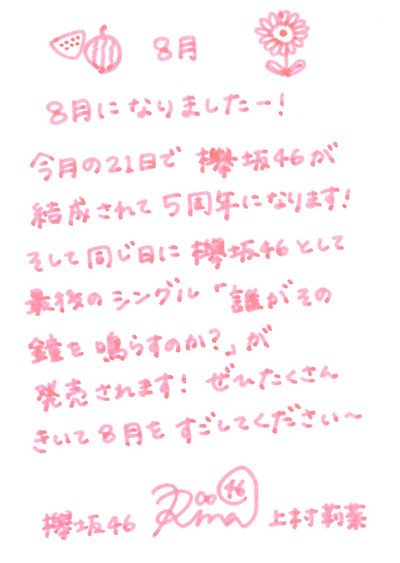 8月
8月になりましたー!
今月の21日で 欅坂46が
結成されて5周年になります!
そして同じ日に欅坂46として
最後のシングル「誰がその
鐘を鳴らすのか?」が
発売されます! ぜひたくさん
きいて8月をすごしてください〜
欅坂46 Rina 46 上村莉菜